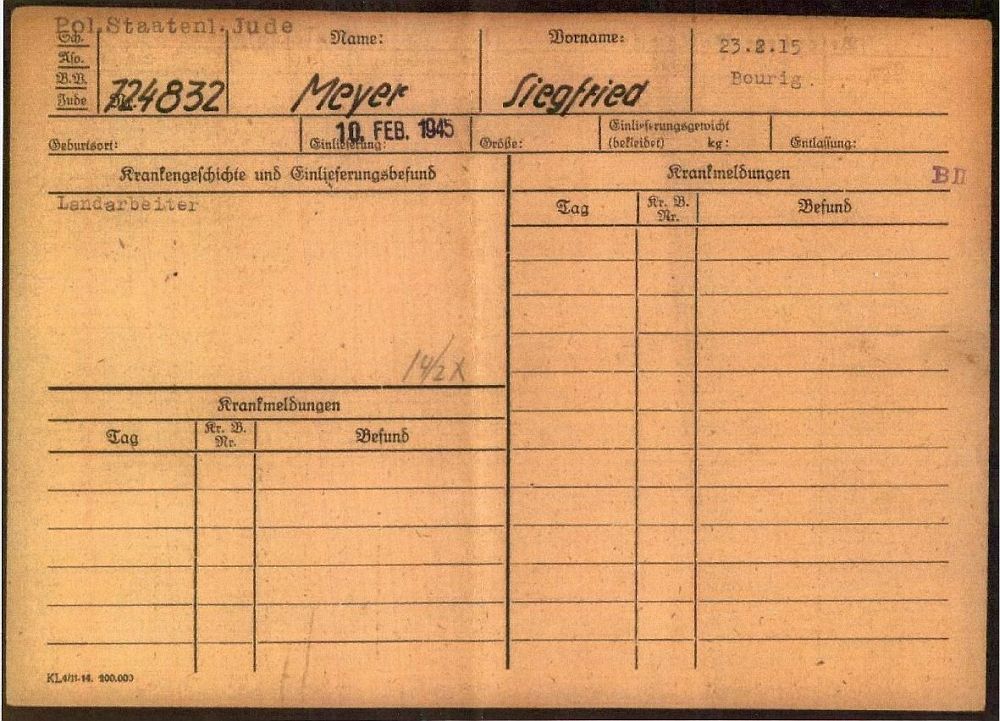 Pol.Staatenl.Jude
Sch.
Aso.
B.V.
Jude Nr.
124832
Name:
Meyer
Vorname:
Siegfried
23.2.15
Bourig.
Geburtsort:
Einlieferung:
10. FEB. 1945
Größe:
Einlieferungsgewicht
(bekleidet) kg:
Entlassung:
Krankengeschichte und Einlieferungsbefund
Landarbeiter
14/2 X
Krankmeldungen
Tag
Kr. B.
Nr.
Befund
Krankmeldungen
B II
Tag
Kr. B.
Nr.
Befund
KL4/11-14. 200.000